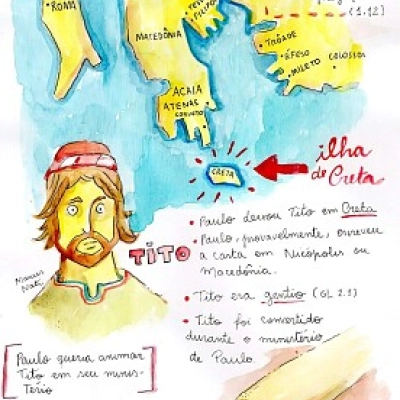 ROMA
FILIPOS
MACEDÔNIA
(1.12)
TRÔADE
ÉFESO
MILETO COLOSSOS
ACAIA
ATENAS
CORINTO
CRETA
ilha
de Creta
TITO
• Paulo deixou Tito em Creta
• Paulo, provavelmente, escreveu
a carta em Nicópolis ou
Macedônia.
• Tito era gentio (GL 2.3)
• Tito foi convertido
durante o ministério
de Paulo.
Paulo queria animar
Tito em seu minis-
tério